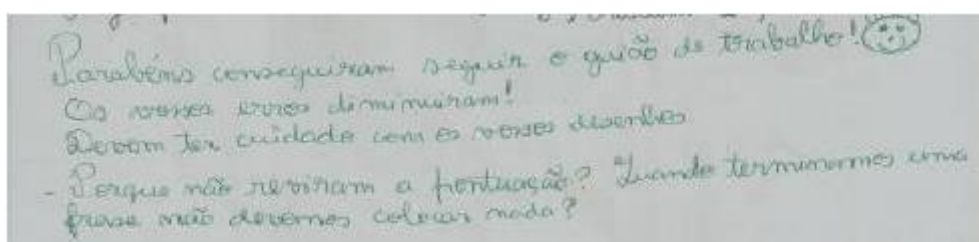 Parabéns conseguiram seguir o guião de trabalho!
Os vossos erros diminuiram!
Devem ter cuidado com os vossos desenhos
- Porque não reviram a pontuação? Quando terminamos uma
frase não devemos colocar nada?